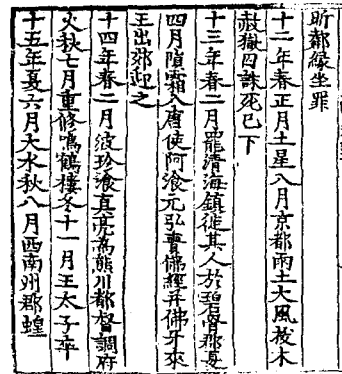 昕都緣坐罪
十二年春正月土星入月京都雨土大風拔木
赦獄囚誅死已下
十三年春二月罷清海鎮徙其人於碧骨郡夏
四月隕霜入唐使阿飡元弘賫佛經并佛牙來
王出郊迎之
十四年春二月波珍飡真亮爲熊川都督調府
火秋七月重修鳴鶴樓冬十一月王太子卒
十五年夏六月大水秋八月西南州郡蝗